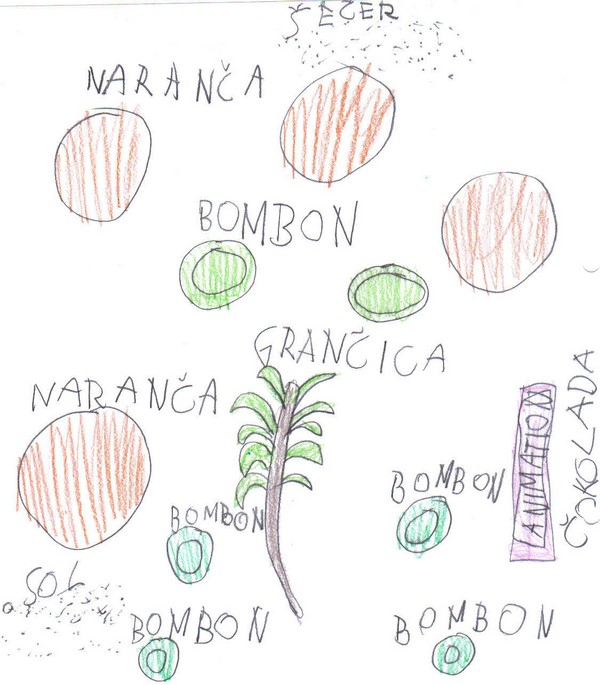 ŠEĆER
NARANČA
BOMBON
GRANČICA
NARANČA
ČOKOLADA
ANIMATION
BOMBON
BOMBON
SOL
BOMBON
BOMBON